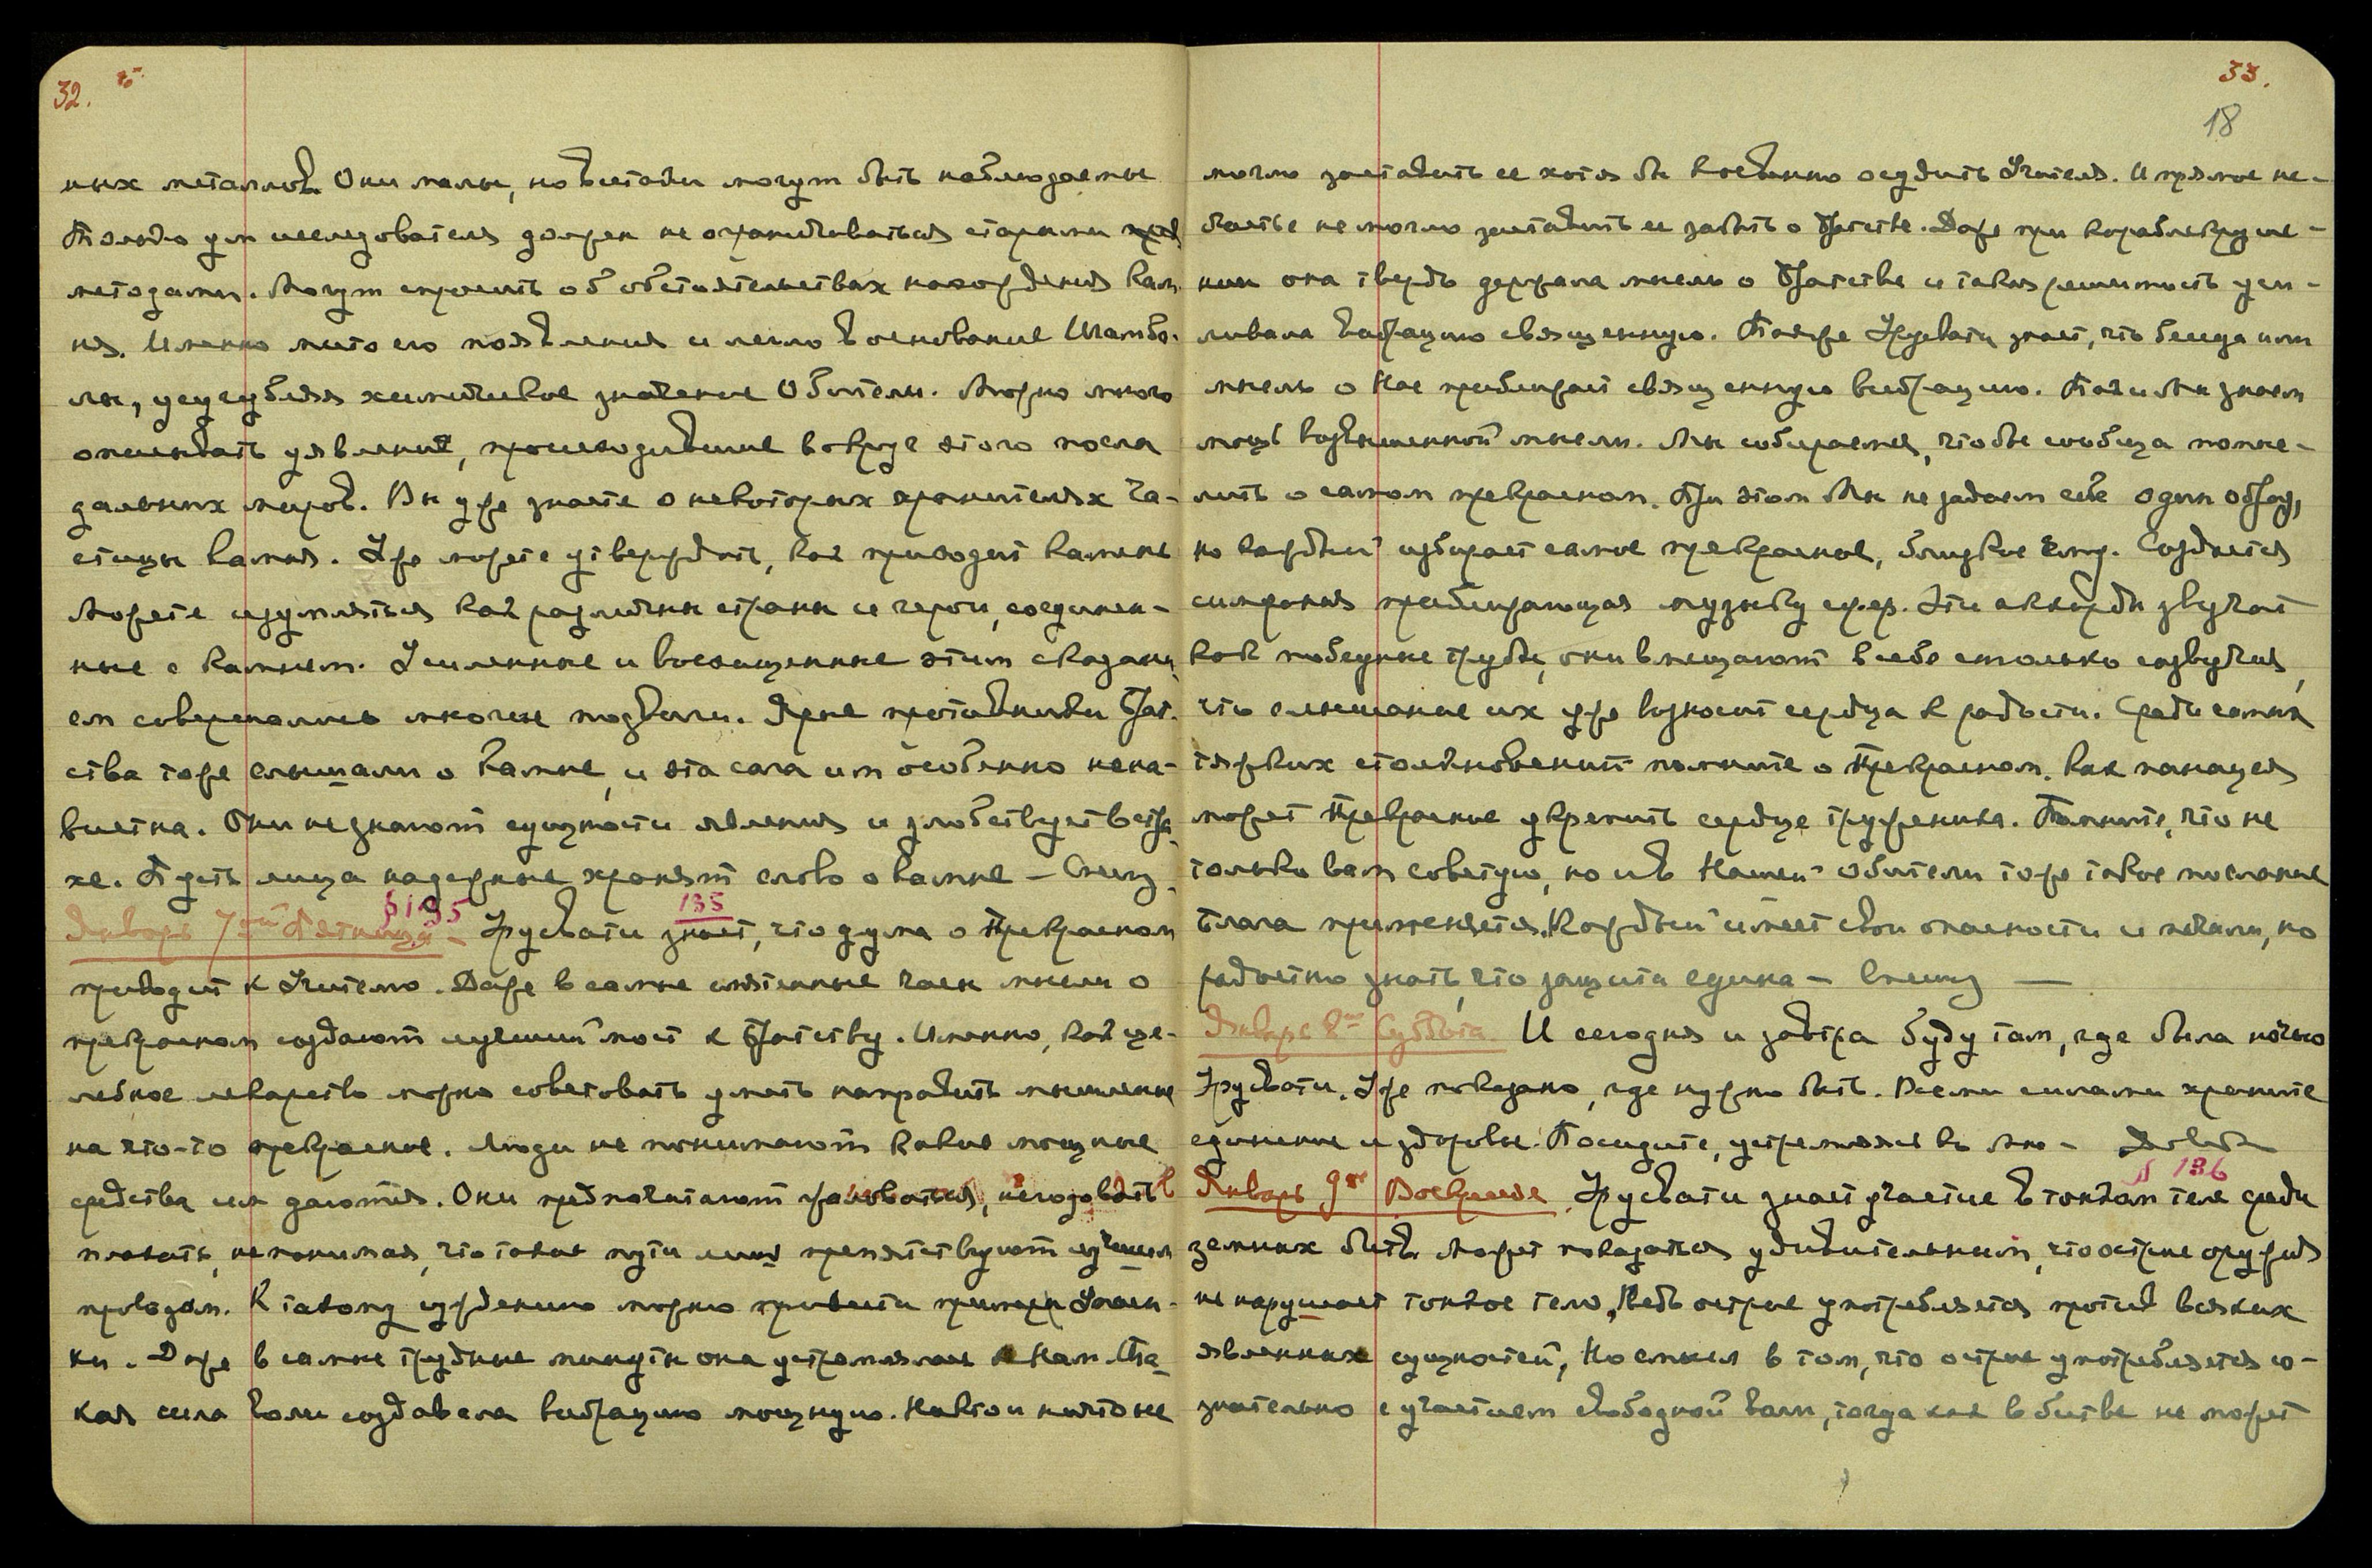 32.
ных металлов. Они малы, но всетаки могут быть наблюдаемы
Только ум исследователя должен не ограничиваться старыми
методами. Могут спросить об обстоятельствах нахождения Кам-
ня. Именно место его появления и легло в основание Шамба-
лы, усугубляя химическое значение Обители. Можно много
описывать явлений, происходившие вокруг этого посла
дальних миров. Вы уже знаете о некоторых хранителях ча-
стицы Камня. Уже можете утвердить, как приходит Камень
Можете изумляться как различны страны и герои, соединен-
ные с Камнем. Усиленные и восхищенные этим сказани-
ем совершались многие подвиги. Ярые противники Брат-
ства тоже слышали о Камне, и эта сага им особенно нена-
вистна. Они не знают сущности явления и злобствуют в стра-
хе. Пусть лица надежные хранят слово о Камне – Спешу
Январь 7ой Пятница – § 135 135 Урусвати знает, что дума о Прекрасном
приводит к Учителю. Даже в самые смятенные часы мысли о
прекрасном создают лучший мост к Братству. Именно, как це-
лебное лекарство можно советовать уметь направить мышление
на что-то прекрасное. Люди не понимают какие мощные
средства им даются. Они предпочитают жаловаться, негодовать
плакать, не понимая, что такие пути лишь препятствуют лучшим
проводам. К такому суждению можно привести пример Учени-
ки. Даже в самые трудные минуты она устремлялась к Нам. Та-
кая сила воли создавала вибрацию мощную. Никто и ничто не
33.
18
могло заставить ее хотя бы косвенно осудить Учителя. И прямое не-
счастье не могло заставить ее забыть о Братстве. Даже при кораблекруше-
нии она твердо держала мысль о Братстве и такая решимость уси-
ливала вибрацию священную. Также Урусвати знает, что беседа или
мысль о Нас пробуждает священную вибрацию. Так и Мы знаем
мощь возвышенной мысли. Мы собираемся, чтобы сообща помыс-
лить о самом прекрасном. При этом Мы не задаем себе один образ,
но каждый избирает самое прекрасное, близкое Ему. Создается
симфония пробуждающая музыку сфер. Эти аккорды звучат
как победные трубы, они вмещают в себе столько созвучия,
что слышание их уже возносит сердца к радости. Среди самых
тяжких столкновений помните о Прекрасном. Как панацея
может Прекрасное укрепить сердце труженика. Помните, что не
только вам советую, но и в Нашей Обители тоже такое послание
блага применяется. Каждый имеет свои опасности и печали, но
радостно знать, что защита едина – Спешу –
Январь 8ое Суббота. И сегодня и завтра буду там, где была ночью
Урусвати. Уже показано, где нужно быть. Всеми силами храните
единение и здоровье. Посидите, устремляясь ко Мне – Довольно
Январь 9ое Воскресенье § 136 Урусвати знает участие в тонком теле среди
земных битв. Может показаться удивительным, что острые оружия
не нарушает тонкое тело, Ведь острие употребляется против всяких
явленных сущностей, Но смысл в том, что острие употребляется со-
знательно с участием свободной воли, тогда как в битве не может